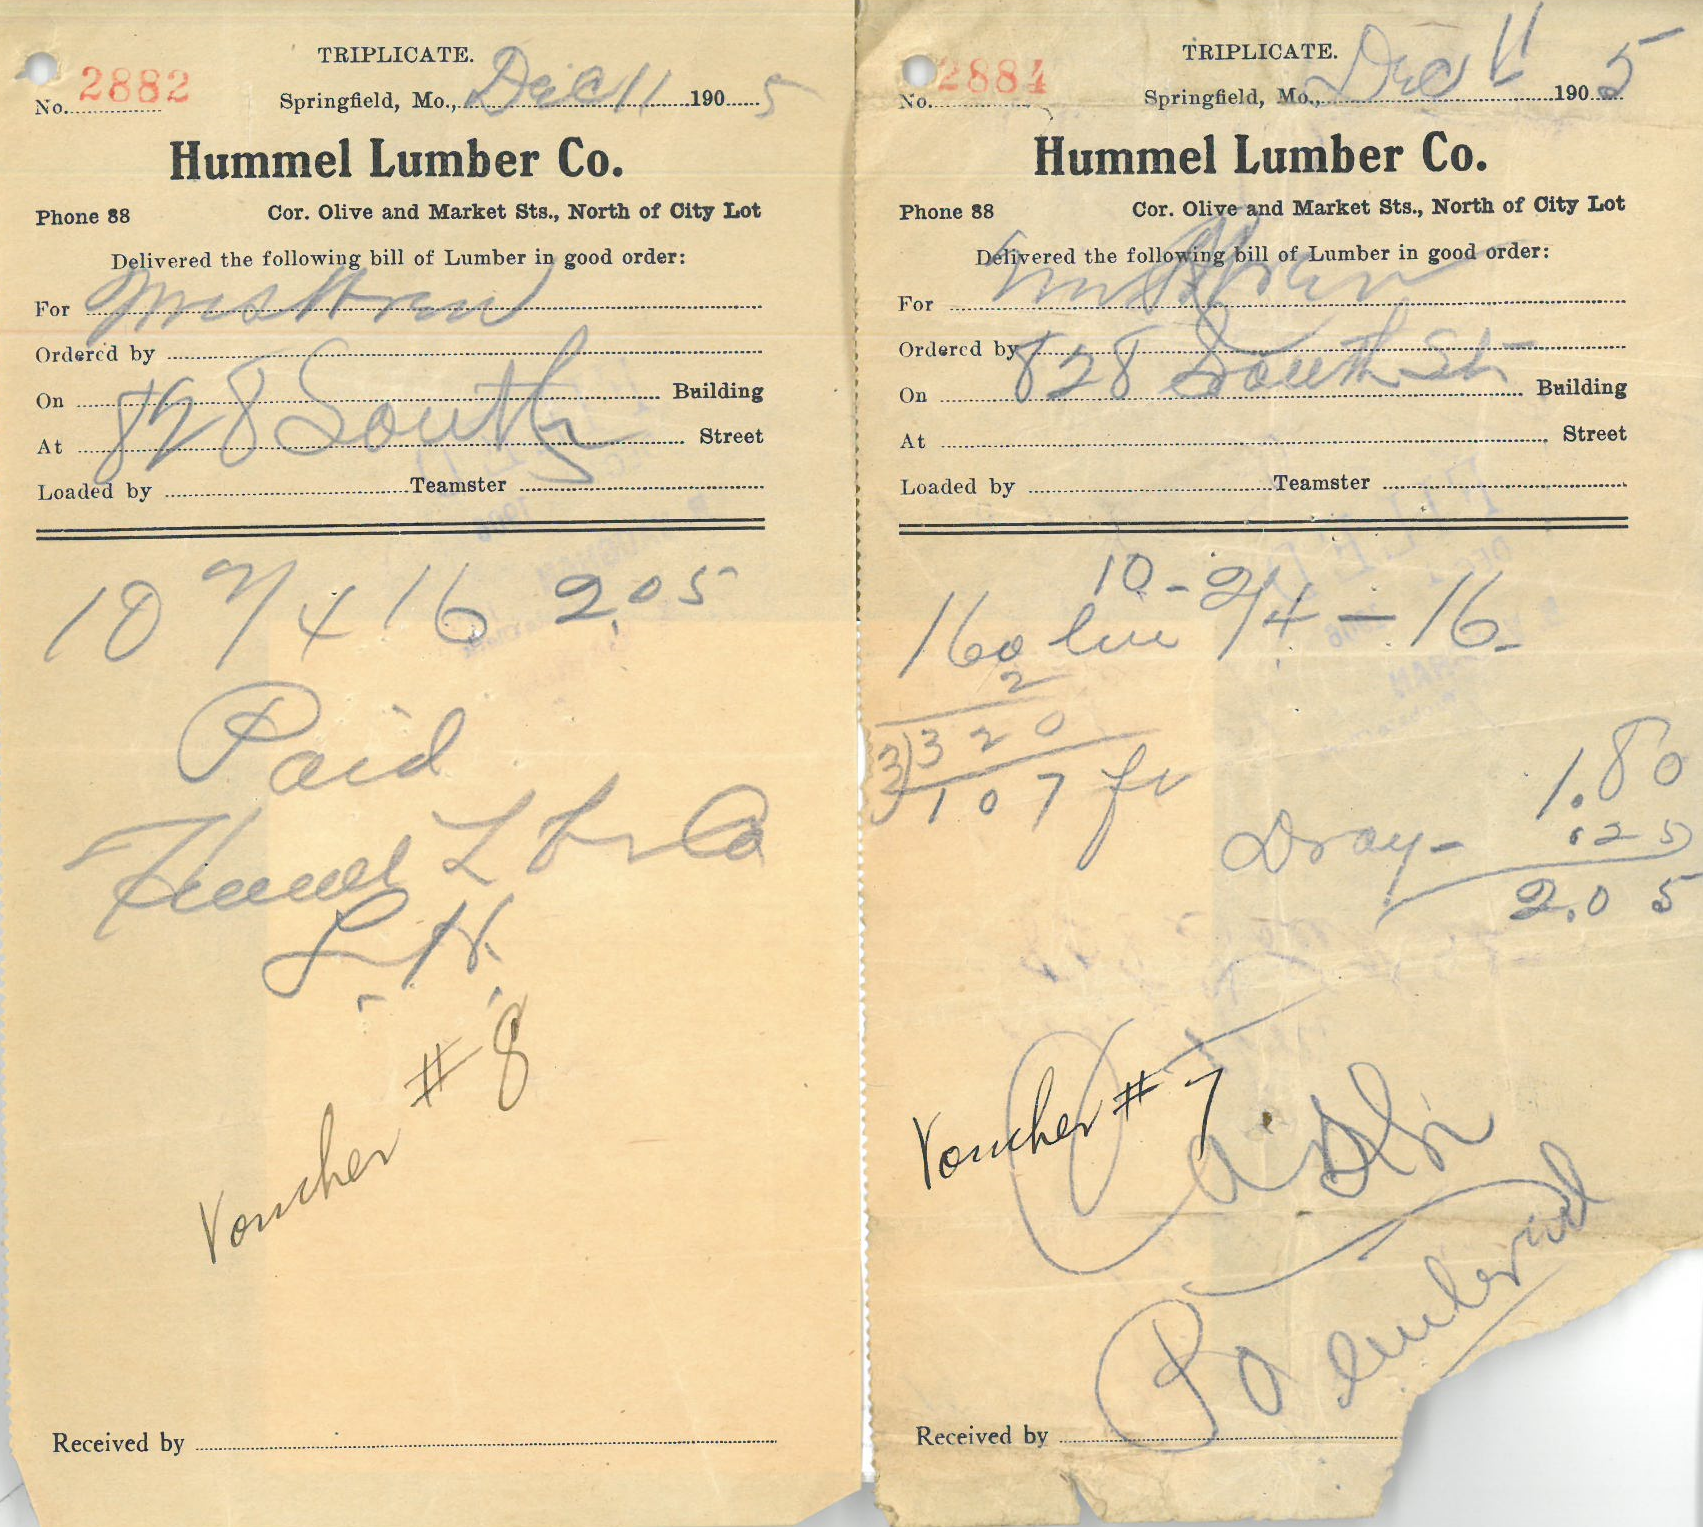 TRIPLICATE.
No. 2882
Springfield, Mo., Dec 11 190 5
Hummel Lumber Co.
Phone 88 Cor. Olive and Market Sts., North of City Lot
Delivered the following bill of Lumber in good order:
For Mrs
Ordered by
On Building
828 South
At Street
Loaded by Teamster
10 2/4 16 2.05
Paid
Hummel L Co
L.H.
Voucher # 8
Received by
TRIPLICATE.
No. 2884
Springfield, Mo., Dec 11 190 5
Hummel Lumber Co.
Phone 88 Cor. Olive and Market Sts., North of City Lot
Delivered the following bill of Lumber in good order:
For
Ordered by
828 South St
On Building
At Street
Loaded by Teamster
10 - 2/4 - 16
160 lin
2
3)320
107 ft
1.80
Dray - .25
2.05
Cash
Voucher # 7
Received by